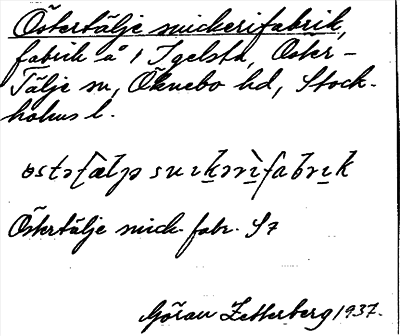 Östertälje snickerifabrik,
fabrik å 1 Igelsta, Öster-
Tälje sn, Öknebo hd, Stock-
holms l.
Östertälje snick. fabr. S7
Göran Zetterberg 1937.